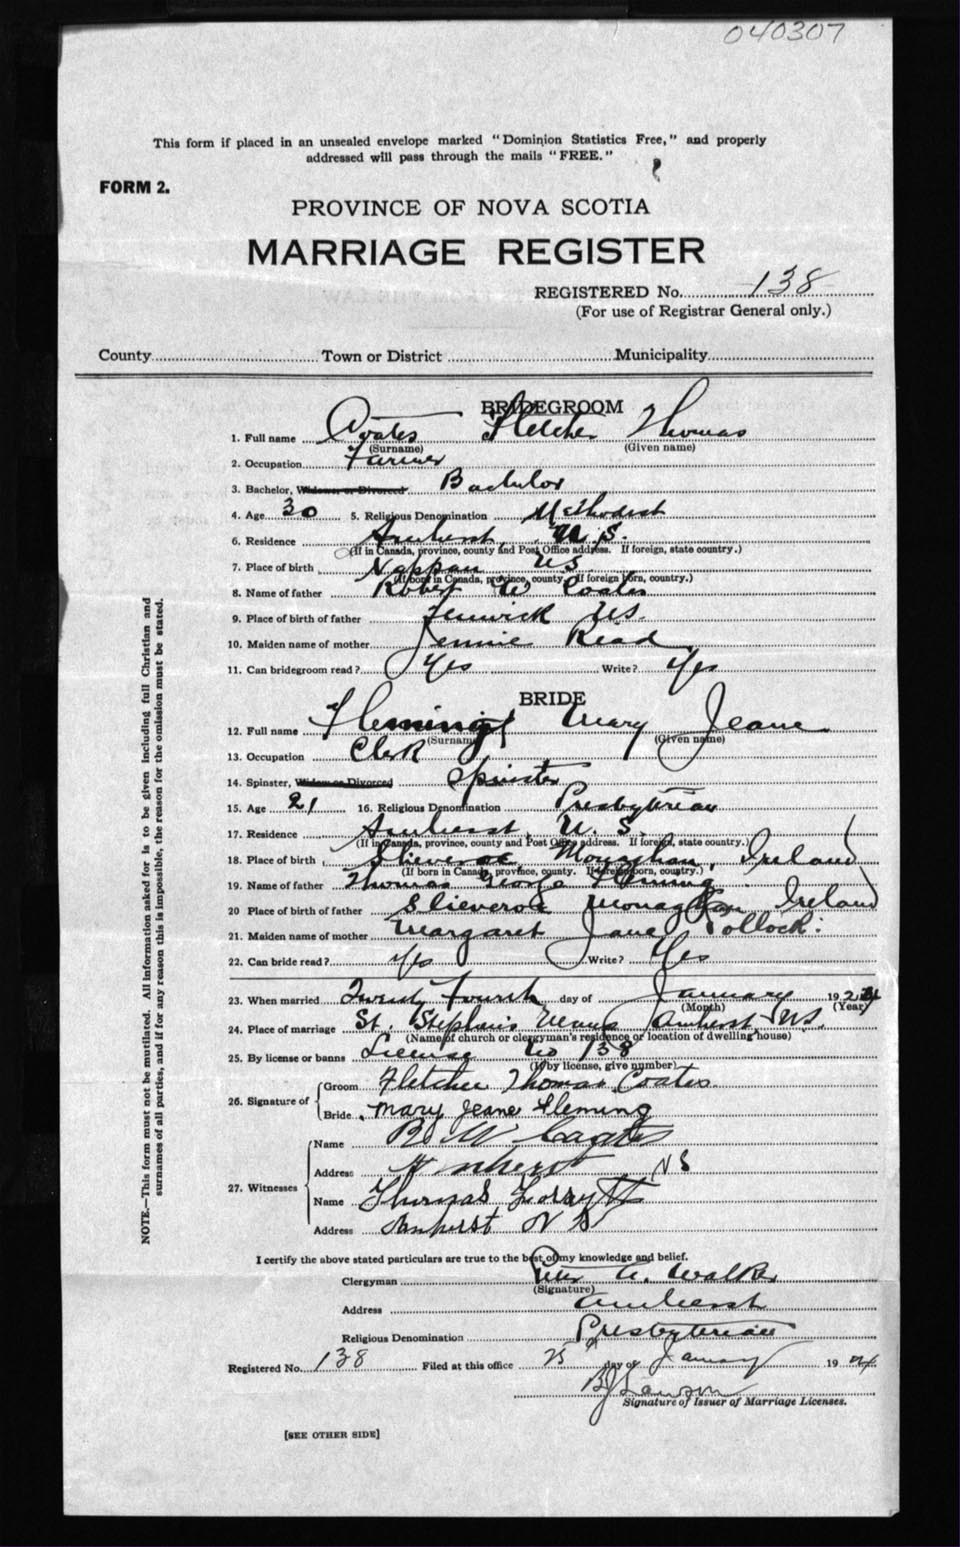 040307
This form if placed in an unsealed envelope marked "Dominion Statistics Free," and properly
addressed will pass through the mails "FREE."
FORM 2.
PROVINCE OF NOVA SCOTIA
MARRIAGE REGISTER
REGISTERED No. 138
(For use of Registrar General only.)
County Town or District Municipality
BRIDEGROOM
1. Full name Coates Fletcher Thomas
(Surname) (Given name)
2. Occupation Farmer
3. Bachelor, Widower or Divorced Bachelor
4. Age 30 5. Religious Denomination Methodist
6. Residence Amherst, N.S.
(If in Canada, province, county and Post Office address. If foreign, state country.)
7. Place of birth Nappan NS
(If born in Canada, province, county. If foreign born, country.)
8. Name of father Robert W Coates
9. Place of birth of father Fenwick NS.
10. Maiden name of mother Jennie Read
11. Can bridegroom read? Yes Write? Yes
BRIDE
12. Full name Fleming Mary Jeane
(Surname) (Given name)
13. Occupation Clerk
14. Spinster, Widow or Divorced Spinster
15. Age 21 16. Religious Denomination Presbyterian
17. Residence Amherst, N.S.
(If in Canada, province, county and Post Office address. If foreign, state country.)
18. Place of birth Slieveroe Monaghan, Ireland
(If born in Canada, province, county. If foreign born, country.)
19. Name of father Thomas George Fleming
20 Place of birth of father Slieveroe Monaghan Ireland
21. Maiden name of mother Margaret Jane Pollock.
22. Can bride read? Yes Write? Yes
23. When married Twenty Fourth day of January 1924
(Month) (Year)
24. Place of marriage St. Stephen's Amherst NS.
(Name of church or clergyman's residence or location of dwelling house)
25. By license or banns License No 138
(If by license, give number)
26. Signature of
Groom Fletcher Thomas Coates.
Bride Mary Jeane Fleming
27. Witnesses
Name R W Coates
Address Amherst NS
Name Thomas
Address Amherst N S
I certify the above stated particulars are true to the best of my knowledge and belief.
Clergyman A. Walker
(Signature)
Address Amherst
Religious Denomination Presbyterian
Registered No. 138 Filed at this office 25 day of January 1924.
B J Lawson
Signature of Issuer of Marriage Licenses.
[SEE OTHER SIDE]
NOTE.—This form must not be mutilated. All information asked for is to be given including full Christian and
surnames of all parties, and if for any reason this is impossible, the reason for the omission must be stated.